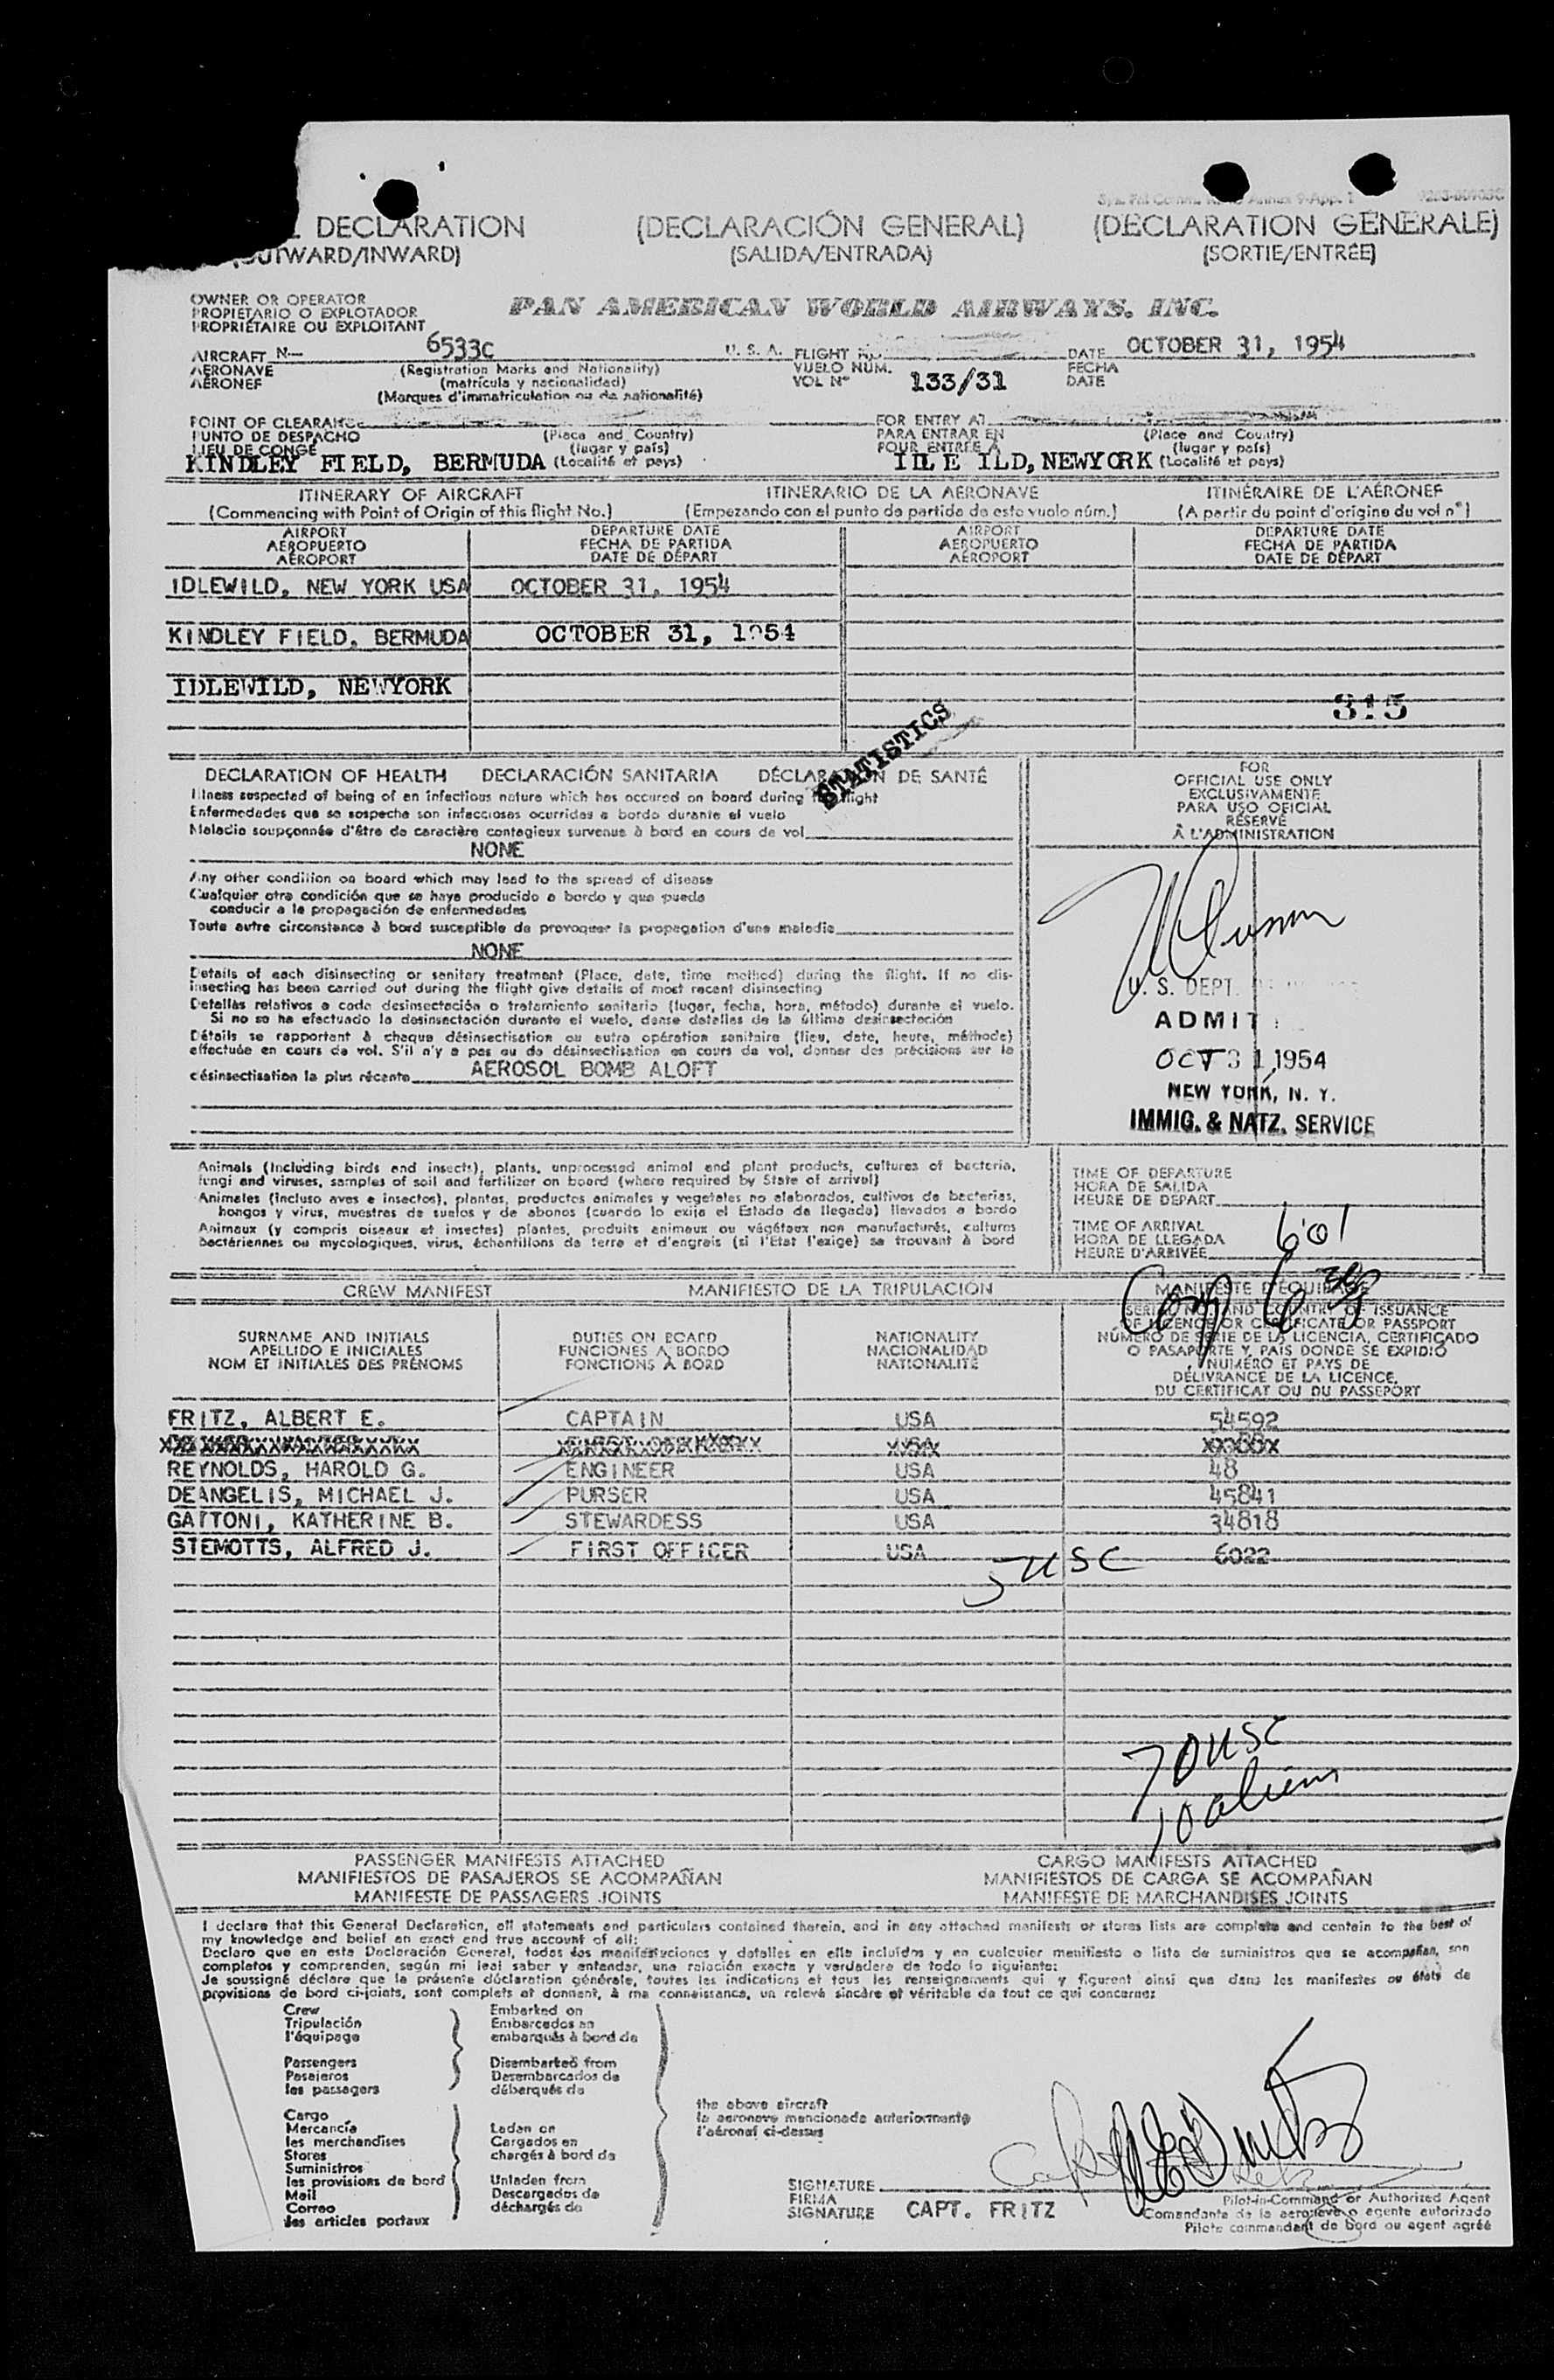 DECLARATION (DECLARACIÓN GENERAL) (DECLARATION GÉNÉRALE)
(OUTWARD/INWARD) (SALIDA/ENTRADA) (SORTIE/ENTRÉE)
OWNER OR OPERATOR
PROPIETARIO O EXPLOTADOR
PROPRIÉTAIRE OU EXPLOITANT
PAN AMERICAN WORLD AIRWAYS, INC.
AIRCRAFT N— 6533C U. S. A. FLIGHT DATE OCTOBER 31, 1954
AERONAVE (Registration Marks and Nationality) VUELO NÚM. FECHA
AÉRONEF (matrícula y nacionalidad) VOL Nº 133/31 DATE
(Marques d'immatriculation ou de nationalité)
POINT OF CLEARANCE FOR ENTRY AT
PUNTO DE DESPACHO (Place and Country) PARA ENTRAR EN (Place and Country)
LIEU DE CONGÉ (lugar y país) POUR ENTRÉE À (lugar y país)
KINDLEY FIELD, BERMUDA (Localité et pays) IDLE ILD, NEWYORK (Localité et pays)
ITINERARY OF AIRCRAFT ITINERARIO DE LA AERONAVE ITINÉRAIRE DE L'AÉRONEF
(Commencing with Point of Origin of this flight No.) (Empezando con el punto de partida de este vuelo núm.) (A partir du point d'origine du vol nº)
AIRPORT DEPARTURE DATE AIRPORT DEPARTURE DATE
AEROPUERTO FECHA DE PARTIDA AEROPUERTO FECHA DE PARTIDA
AÉROPORT DATE DE DÉPART AÉROPORT DATE DE DÉPART
IDLEWILD, NEW YORK USA OCTOBER 31, 1954
KINDLEY FIELD, BERMUDA OCTOBER 31, 1954
IDLEWILD, NEWYORK
315
STATISTICS
DECLARATION OF HEALTH DECLARACIÓN SANITARIA DÉCLARATION DE SANTÉ
Illness suspected of being of an infectious nature which has occured on board during the flight
Enfermedades que se sospecha son infecciosas ocurridas a bordo durante el vuelo
Maladie soupçonnée d'être de caractère contagieux survenue à bord en cours de vol
NONE
Any other condition on board which may lead to the spread of disease
Cualquier otra condición que se haya producido a bordo y que pueda
conducir a la propagación de enfermedades
Toute autre circonstance à bord susceptible de provoquer la propagation d'une maladie
NONE
Details of each disinsecting or sanitary treatment (Place, date, time method) during the flight. If no dis-
insecting has been carried out during the flight give details of most recent disinsecting
Detallas relativos a cada desinsectación o tratamiento sanitario (lugar, fecha, hora, método) durante el vuelo.
Si no se ha efectuado la desinsectación durante el vuelo, dense detalles de la última desinsectación
Détails se rapportant à chaque désinsectisation ou autre opération sanitaire (lieu, date, heure, méthode)
effectuée en cours de vol. S'il n'y a pas eu de désinsectisation en cours de vol, donner des précisions sur la
désinsectisation la plus récente AEROSOL BOMB ALOFT
FOR
OFFICIAL USE ONLY
EXCLUSIVAMENTE
PARA USO OFICIAL
RÉSERVÉ
À L'ADMINISTRATION
U. S. DEPT.
ADMIT
OCT 31 1954
NEW YORK, N. Y.
IMMIG. & NATZ. SERVICE
Animals (Including birds and insects), plants, unprocessed animal and plant products, cultures of bacteria,
fungi and viruses, samples of soil and fertilizer on board (where required by State of arrival)
Animales (incluso aves e insectos), plantas, productos animales y vegetales no elaborados, cultivos de bacterias,
hongos y virus, muestras de suelos y de abonos (cuando lo exija el Estado de llegada) llevados a bordo
Animaux (y compris oiseaux et insectes) plantes, produits animaux ou végétaux non manufacturés, cultures
bactériennes ou mycologiques, virus, échantillons de terre et d'engrais (si l'Etat l'exige) se trouvant à bord
TIME OF DEPARTURE
HORA DE SALIDA
HEURE DE DÉPART
TIME OF ARRIVAL
HORA DE LLEGADA
HEURE D'ARRIVÉE
601
CREW MANIFEST MANIFIESTO DE LA TRIPULACIÓN MANIFESTE D'ÉQUIPAGE
SURNAME AND INITIALS DUTIES ON BOARD NATIONALITY
APELLIDO E INICIALES FUNCIONES A BORDO NACIONALIDAD
NOM ET INITIALES DES PRÉNOMS FONCTIONS À BORD NATIONALITÉ
SERIAL NO. AND COUNTRY OF ISSUANCE
OF LICENCE OR CERTIFICATE OR PASSPORT
NÚMERO DE SERIE DE LA LICENCIA, CERTIFICADO
O PASAPORTE Y PAÍS DONDE SE EXPIDIÓ
NUMÉRO ET PAYS DE
DÉLIVRANCE DE LA LICENCE,
DU CERTIFICAT OU DU PASSEPORT
FRITZ, ALBERT E. CAPTAIN USA 54592
REYNOLDS, HAROLD G. ENGINEER USA 48
DEANGELIS, MICHAEL J. PURSER USA 45841
GATTONI, KATHERINE B. STEWARDESS USA 34818
STEMOTTS, ALFRED J. FIRST OFFICER USA 6022
5 USC
70 USC
10 aliens
PASSENGER MANIFESTS ATTACHED CARGO MANIFESTS ATTACHED
MANIFIESTOS DE PASAJEROS SE ACOMPAÑAN MANIFIESTOS DE CARGA SE ACOMPAÑAN
MANIFESTE DE PASSAGERS JOINTS MANIFESTE DE MARCHANDISES JOINTS
I declare that this General Declaration, all statements and particulars contained therein, and in any attached manifests or stores lists are complete and contain to the best of
my knowledge and belief an exact and true account of all:
Declaro que en esta Declaración General, todas las manifestaciones y detalles en ella incluídos y en cualquier manifiesto o lista de suministros que se acompañan, son
completos y comprenden, según mi leal saber y entender, una relación exacta y verdadera de todo lo siguiente:
Je soussigné déclare que la présente déclaration générale, toutes les indications et tous les renseignements qui y figurent ainsi que dans les manifestes ou états de
provisions de bord ci-joints, sont complets et donnent, à ma connaissance, un relevé sincère et véritable de tout ce qui concerne:
Crew Embarked on
Tripulación Embarcados en
l'équipage embarqués à bord de
Passengers Disembarked from
Pasajeros Desembarcados de
les passagers débarqués de
the above aircraft
la aeronave mencionada anteriormente
l'aéronef ci-dessus
Cargo
Mercancía Laden on
les merchandises Cargados en
Stores chargés à bord de
Suministros
les provisions de bord Unladen from
Mail Descargados de
Correo déchargés de
les articles postaux
SIGNATURE
FIRMA
SIGNATURE CAPT. FRITZ
Pilot-in-Command or Authorized Agent
Comandante de la aeronave o agente autorizado
Pilote commandant de bord ou agent agréé